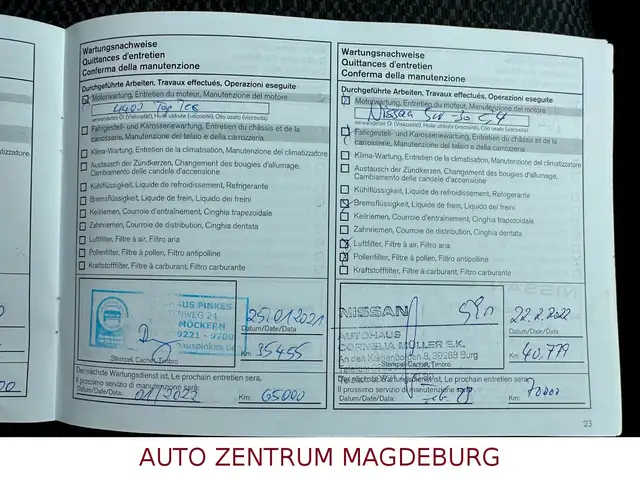 Wartungsnachweise
Quittances d'entretien
Conferma della manutenzione
Durchgeführte Arbeiten, Travaux effectués, Operazioni eseguite
Motorwartung, Entretien du moteur, Manutenzione del motore
verwendetes Öl (Viskosität), Huile utilisée (viscosité), Olio usato (viscosità)
Fahrgestell- und Karosseriewartung, Entretien du châssis et de la
carrosserie, Manutenzione del telaio e della carrozzeria
Klima-Wartung, Entretien de la climatisation, Manutenzione del climatizzatore
Austausch der Zündkerzen, Changement des bougies d'allumage,
Cambiamento delle candele d'accensione
Kühlflüssigkeit, Liquide de refroidissement, Refrigerante
Bremsflüssigkeit, Liquide de frein, Liquido dei freini
Keilriemen, Courroie d'entraînement, Cinghia trapezoidale
Zahnriemen, Courroie de distribution, Cinghia dentata
Luftfilter, Filtre à air, Filtro aria
Pollenfilter, Filtre à pollen, Filtro antipolline
Kraftstofffilter, Filtre à carburant, Filtro carburante
AUS PINKES
ENWEG 24
MÖCKERN
9221 - 9700
auspinkes.de
25.01.2021
Datum/Date/Data
Km: 35455
Stempel, Cachet, Timbro
Der nächste Wartungsdienst ist, Le prochain entretien sera,
Il prossimo servizio di manutenzione sarà:
Datum/Date/Data: 01/2023 Km: 65000
Wartungsnachweise
Quittances d'entretien
Conferma della manutenzione
Durchgeführte Arbeiten, Travaux effectués, Operazioni eseguite
Motorwartung, Entretien du moteur, Manutenzione del motore
Nissan 5W-30 C4
verwendetes Öl (Viskosität), Huile utilisée (viscosité), Olio usato (viscosità)
Fahrgestell- und Karosseriewartung, Entretien du châssis et de la
carrosserie, Manutenzione del telaio e della carrozzeria
Klima-Wartung, Entretien de la climatisation, Manutenzione del climatizzatore
Austausch der Zündkerzen, Changement des bougies d'allumage,
Cambiamento delle candele d'accensione
Kühlflüssigkeit, Liquide de refroidissement, Refrigerante
Bremsflüssigkeit, Liquide de frein, Liquido dei freini
Keilriemen, Courroie d'entraînement, Cinghia trapezoidale
Zahnriemen, Courroie de distribution, Cinghia dentata
Luftfilter, Filtre à air, Filtro aria
Pollenfilter, Filtre à pollen, Filtro antipolline
Kraftstofffilter, Filtre à carburant, Filtro carburante
NISSAN
AUTOHAUS
CORNELIA MÜLLER S.K.
An den Krähenbergen 8, 39288 Burg
22.2.2022
Datum/Date/Data
Km: 40.779
Stempel, Cachet, Timbro
Der nächste Wartungsdienst ist, Le prochain entretien sera,
Il prossimo servizio di manutenzione sarà:
Datum/Date/Data: Km: 70000
23
AUTO ZENTRUM MAGDEBURG